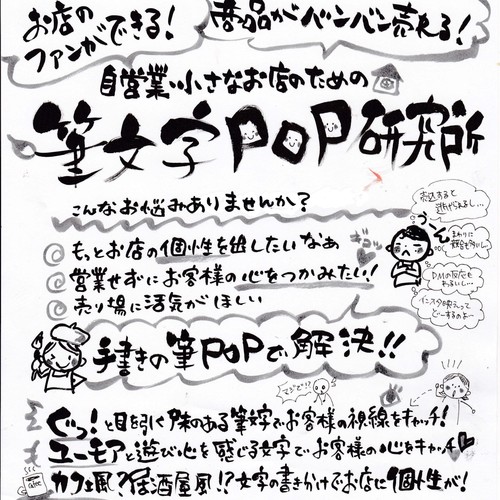 お店の
ファンができる!
商品がバンバン売れる!
自営業・小さなお店のための
筆文字POP研究所
こんなお悩みありませんか?
もっとお店の個性を出したいなぁ
営業せずにお客様の心をつかみたい!
売り場に活気がほしい
売込すると
逃げられるし…
まわりに
競合も多いし
DMの反応も
わるいし…
インスタ映えって
どーするのよ…
手書きの筆POPで解決!!
マジで!?
ぐっ!と目を引く味のある筆文字でお客様の視線をキャッチ!
ユーモアと遊び心を感じる文字でお客様の心をキャッチ
カフェ風?居酒屋風!?文字の書きかけでお店に個性が!